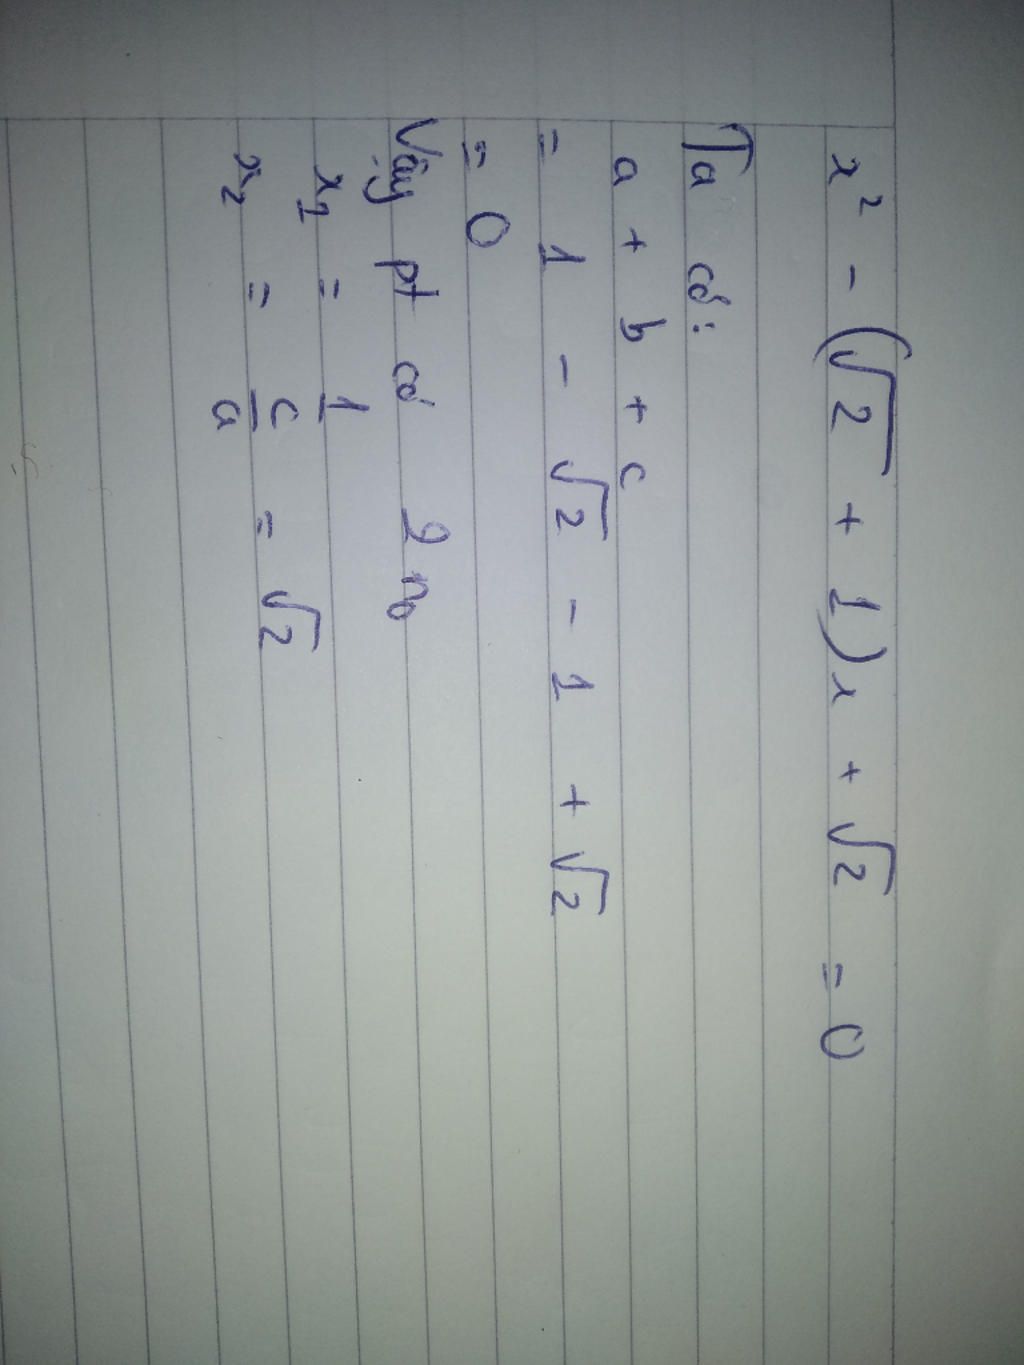 x² - (√2 + 1)x + √2 = 0
Ta có:
a + b + c
= 1 - √2 - 1 + √2
= 0
Vậy pt có 2 n₀
x₁ = 1
x₂ = c/a = √2